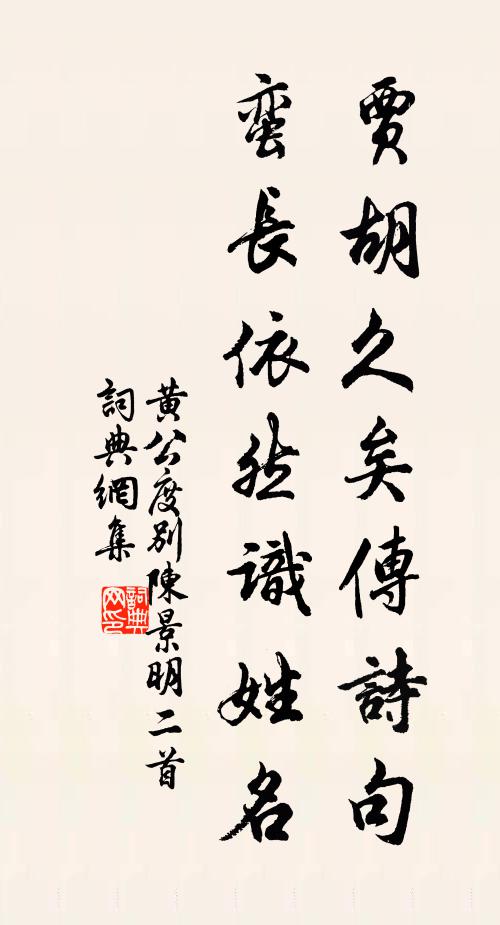 賈胡久矣傳詩句
蛮長依然識姓名
黄公度别陳景明二首
詞典網集
詞典网印